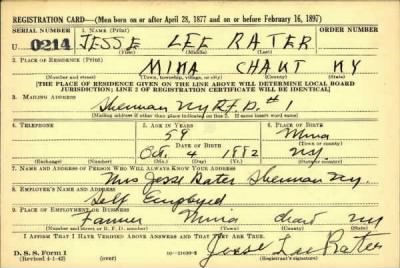 REGISTRATION CARD—(Men born on or after April 28, 1877 and on or before February 16, 1897)
SERIAL NUMBER 1. NAME (Print) ORDER NUMBER
U 0214 JESSE LEE RATER
(First) (Middle) (Last)
2. PLACE OF RESIDENCE (Print)
MINA CHAUT NY
(Number and street) (Town, township, village, or city) (County) (State)
[THE PLACE OF RESIDENCE GIVEN ON THE LINE ABOVE WILL DETERMINE LOCAL BOARD
JURISDICTION; LINE 2 OF REGISTRATION CERTIFICATE WILL BE IDENTICAL]
3. MAILING ADDRESS
Sherman NY R.F.D. # 1
(Mailing address if other than place indicated on line 2. If same insert word same)
4. TELEPHONE 5. AGE IN YEARS 6. PLACE OF BIRTH
59 Mina
DATE OF BIRTH (Town or county)
Oct. 4 1882 NY.
(Exchange) (Number) (Mo.) (Day) (Yr.) (State or country)
7. NAME AND ADDRESS OF PERSON WHO WILL ALWAYS KNOW YOUR ADDRESS
Mrs Jesse Rater Sherman Ny.
8. EMPLOYER'S NAME AND ADDRESS
Self Employed
9. PLACE OF EMPLOYMENT OR BUSINESS
Farmer Mina chaut NY
(Number and street or R. F. D. number) (Town) (County) (State)
I AFFIRM THAT I HAVE VERIFIED ABOVE ANSWERS AND THAT THEY ARE TRUE.
D. S. S. Form 1
(Revised 4-1-42) (over) 16—21630-2 Jesse Lee Rater
(Registrant's signature)